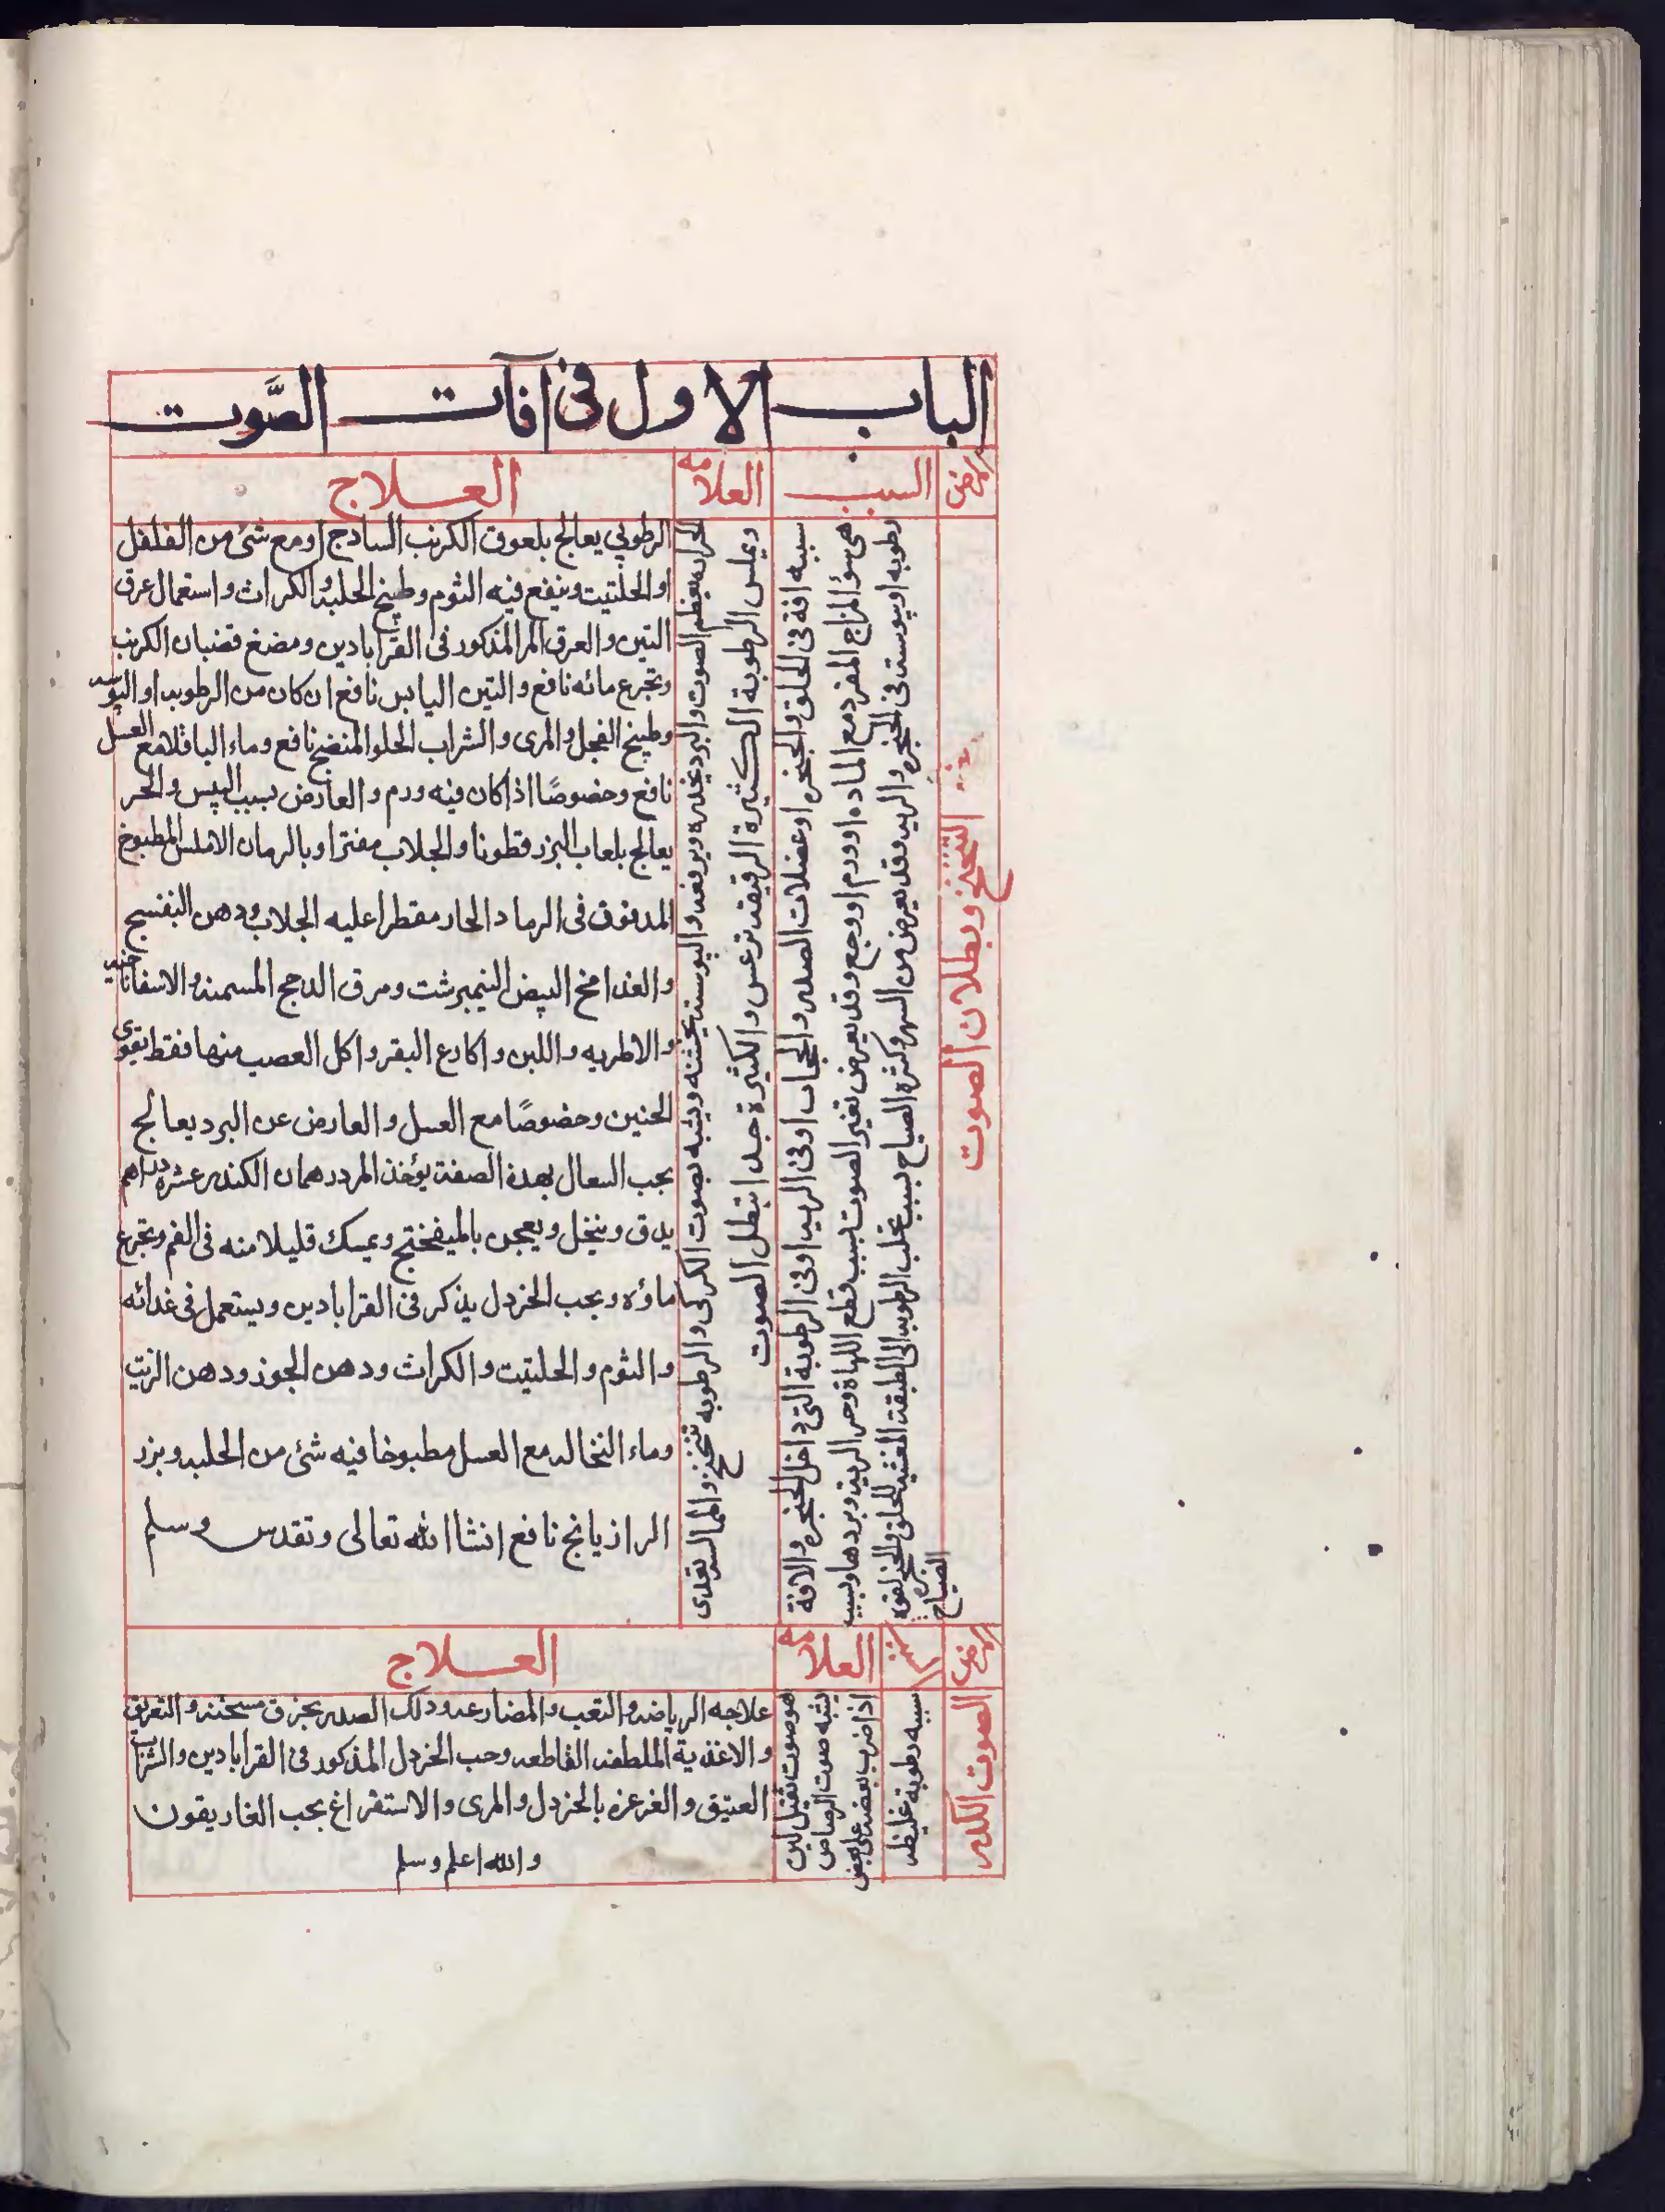 الباب الاول في آفات الصَّوت
المرض
السبب
العلامه
العلاج
التنحنح وبطلان الصوت
سببه افة في الحلق والحنجره او عضلات الصدر والحجاب او في الريه او في الرطوبة التي داخل الحنجره والافة
هي سؤ المزاج المفرد مع الماده او ورم او وجع وقد يعرض تغير الصوت بسبب قطع اللهاة وحر الريه وبردها وبسبب
رطوبه او يبوسة في الحنجره والريه وقد يعرض من السهر وكثرة الصياح بسبب تحلب الرطوبه الى الطبقة المغشيه للحلق والحنجرة لقوة
الصياح
الحراره يعظم الصوت والبرد يخدره ويرفعه واليبوسة يخشنه ويشبه بصوت الكركي والرطوبه تنحنح والملاسه تعدى
ويملس الرطوبة الكثيرة الرقيقه ترعس والكثيرة جدا تبطل الصوت
الرطوبي يعالج بلعوق الكرنب الساذج او مع شئ من الفلفل
او الحلتيت وينفع فيه الثوم وطبيخ الحلبه والكراث واستعمال عرق
التين والعرق المر المذكور في القراباذين ومضغ قضبان الكرنب
وتجرع مائه نافع والتين اليابس نافع ان كان من الرطوبه او اليبوسه
وطبيخ الفجل والمرى والشراب الحلو المنضج نافع وماء الباقلا مع العسل
نافع وخصوصًا اذا كان فيه ورم والعارض بسبب اليبس والحر
يعالج بلعاب البزر قطونا والجلاب مفترا وبالرمان الاملس المطبوخ
المدفون في الرماد الحار مقطرا عليه الجلاب ودهن البنفسج
والغذا مخ البيض النيمبرشت ومرق الدجج المسمنه والاسفاناخيه
والاطريه واللبن واكارع البقر واكل العصب منها فقط يقوى
الحنين وخصوصًا مع العسل والعارض عن البرد يعالج
بحب السعال بهذة الصفة يؤخذ المر درهمان الكندر عشره دراهم
يدق وينخل ويعجن بالميفختج ويمسك قليلا منه في الفم وتجرع
ماؤه وبحب الخردل يذكر في القراباذين ويستعمل في غدائه
والثوم والحلتيت والكراث ودهن الجوز ودهن الزيت
وماء النخاله مع العسل مطبوخا فيه شئ من الحلبه وبزر
الرازيانج نافع انشا الله تعالى وتقدس وسلم
المرض
السبب
العلامه
العلاج
الصوت الكدر
سببه رطوبة غليظه
هو صوت ثقيل لين
يشبه صوت الرصاص
اذا ضرب بعضه على بعض
علاجه الرياضه والتعب والمصارعه ودلك الصدر بخرق مسخنة والتعريق
والاغذية الملطفه القاطعه وحب الخردل المذكور في القراباذين والشراب
العتيق والغرغره بالخردل والمرى والاستفراغ بحب الغاريقون
والله اعلم وسلم